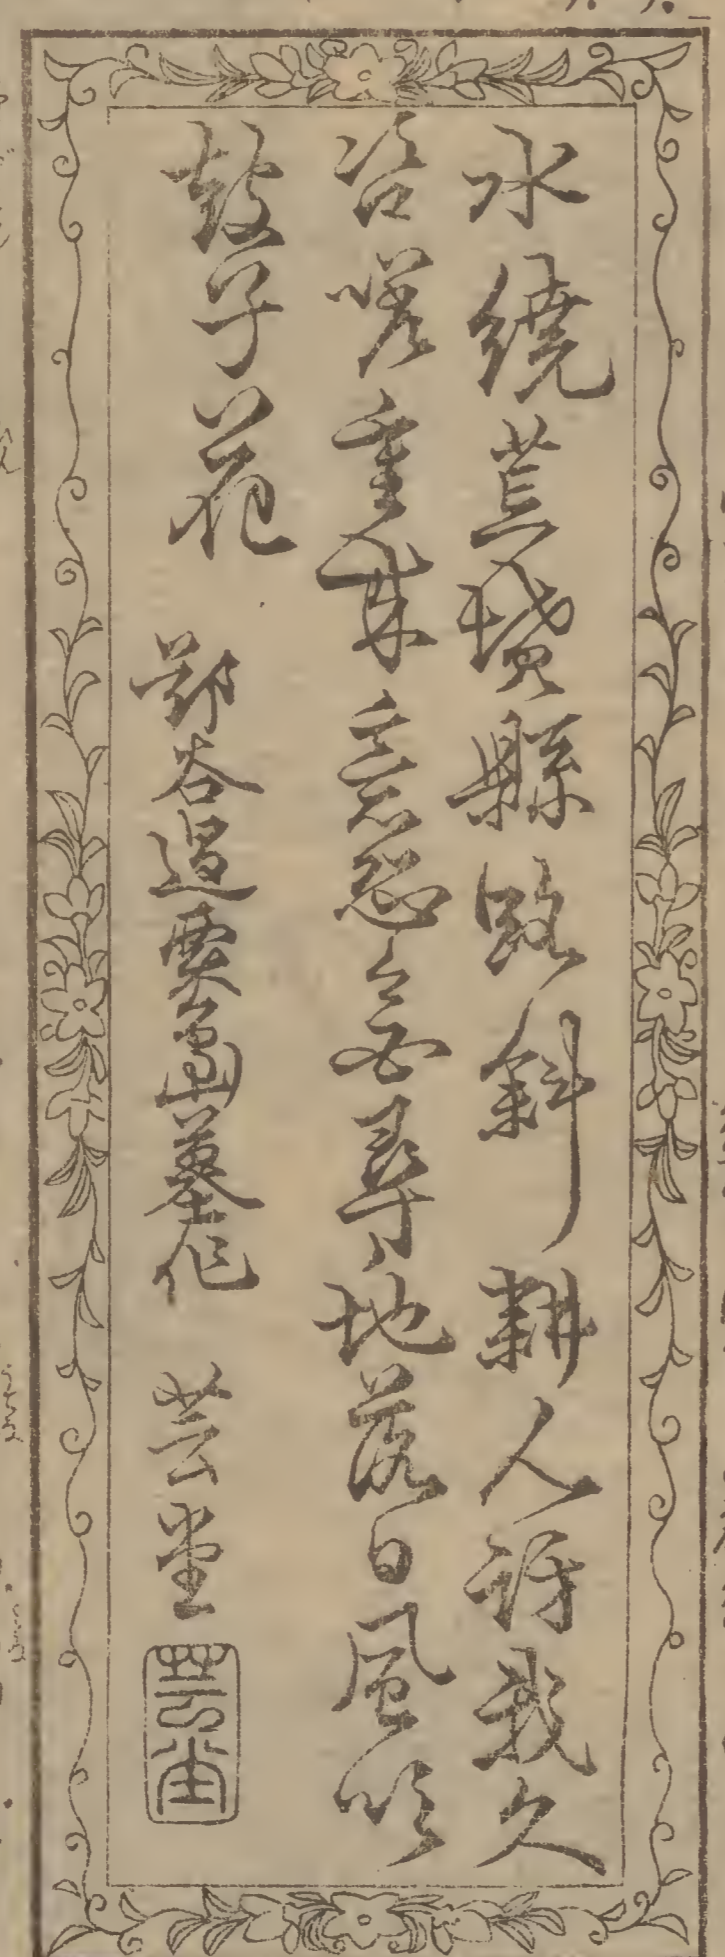 水繞荒墳縣路斜耕人訝我久
咨嗟重来意恐無尋地落日風吹
鼓子花 鄭谷過賈島墓作 芸堂
芸堂